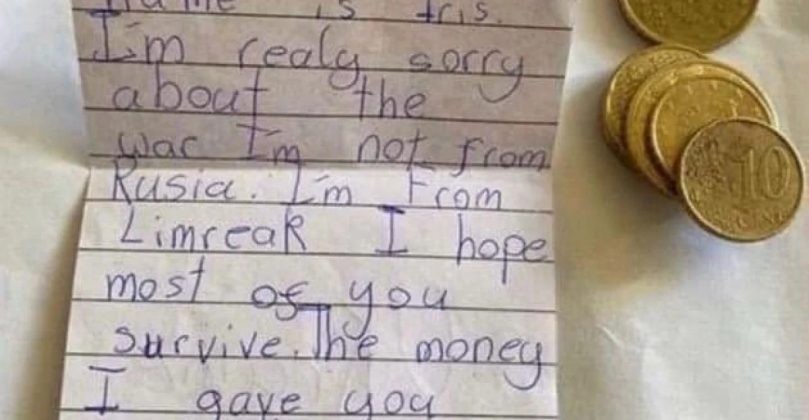 name is Iris.
I'm realy sorry
about the
war I'm not from
Rusia. I'm From
Limreak I hope
most of you
survive. The money
I gave you
10